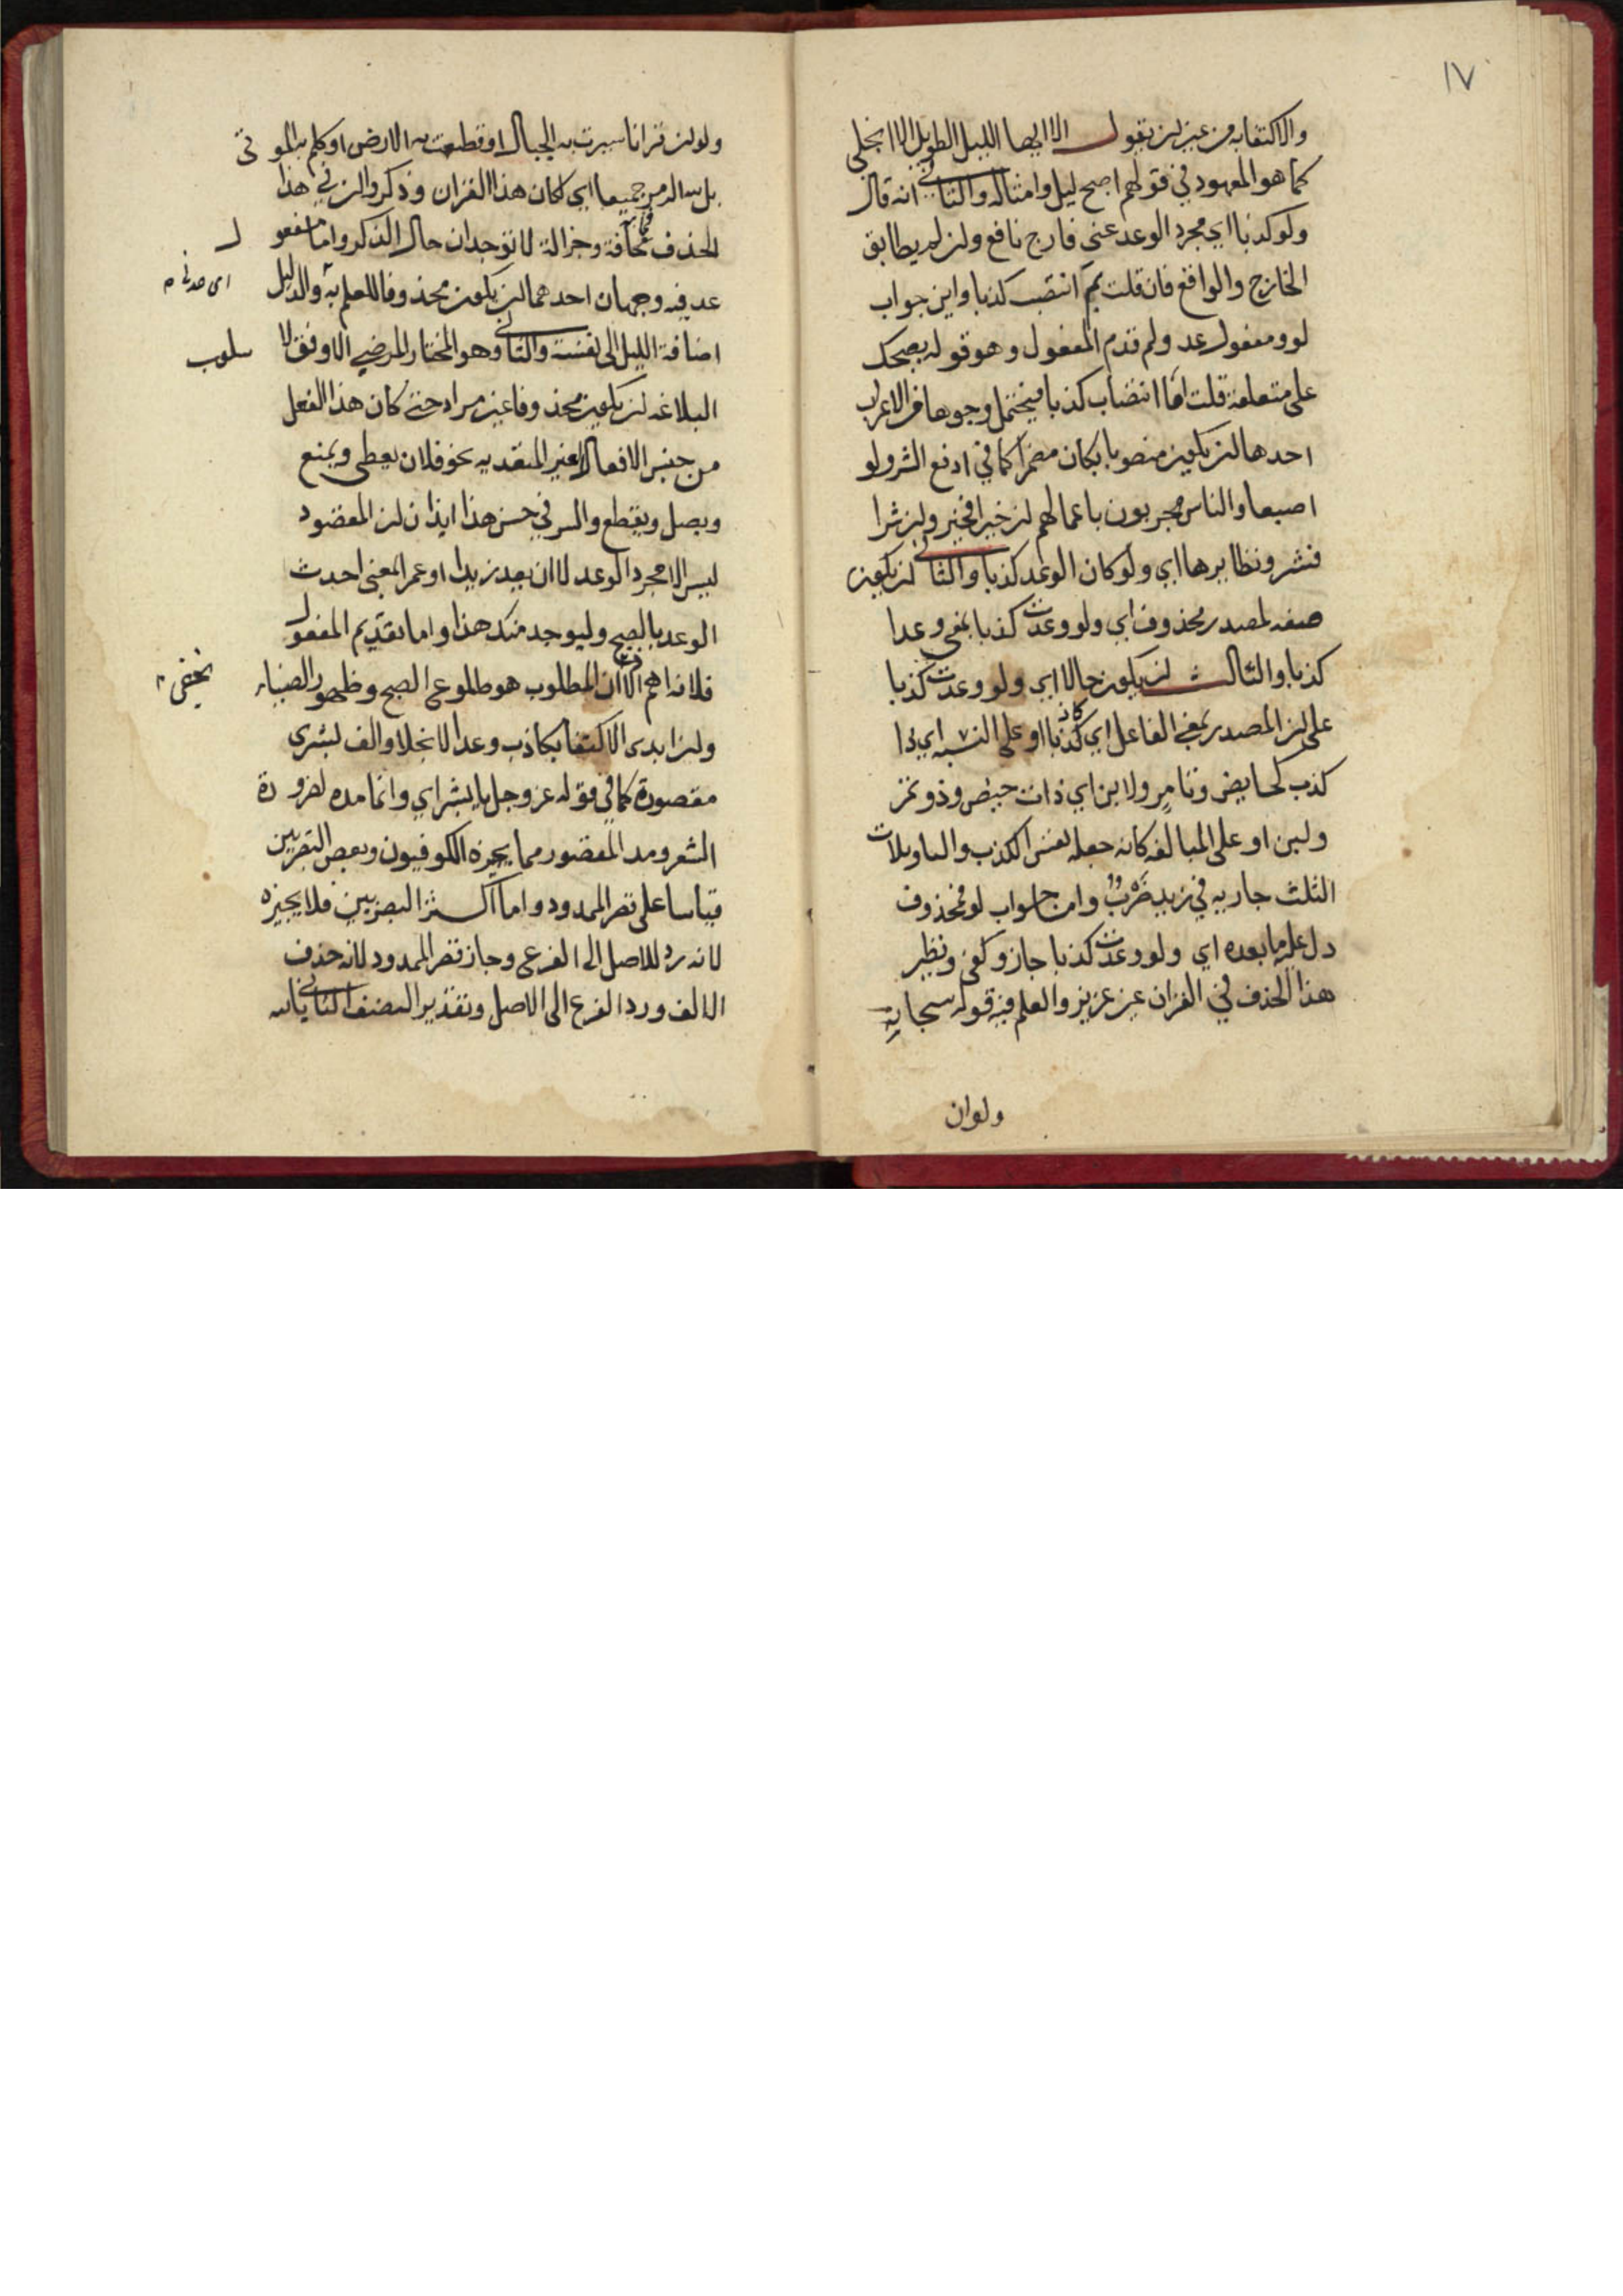 ١٧
والاكتفا به من غير ان يقول الا ايها الليل الطويل الا انجلي
كما هو المعهود في قولهم اصبح ليل وامثاله والثاني انه قال
ولو كذبا اي مجرد الوعد عني فارج نافع وان لم يطابق
الخارج والواقع فان قلت بم انتصب كذبا واين جواب
لو ومفعول عد ولم قدم المفعول وهو قوله بصبحك
على متعلقه قلت اما انتصاب كذبا فيحتمل وجوها من الاعراب
احدها ان يكون منصوبا بكان مضمرا كما في ادفع الشر ولو
اصبعا والناس مجريون باعمالهم ان خيرا فخير وان شرا
فشر ونظايرها اي ولو كان الوعد كذبا والثاني ان يكون
صفه لمصدر محذوف اي ولو وعدت كذبا بمعنى وعدا
كذبا والثالث ان يكون حالا اي ولو وعدت كذبا
على ان المصدر بمعنى الفاعل اي كاذبا او على النسبه اي ذا
كذب كحايض وتامر ولابن اي ذات حيض وذو تمر
ولبن او على المبالغه كانه جعله نفس الكذب والتاويلات
الثلث جاريه في زيد ضرب واما جواب لو فمحذوف
دل عليه ما بعده اي ولو وعدت كذبا جاز وكفى ونظير
هذا الحذف في القران غير عزيز والعلم فيه قوله سبحانه
ولو ان
ولو ان قرانا سيرت به الجبال او قطعت به الارض او كلم به الموتى
بل لله الامر جميعا اي لكان هذا القران وذكروا ان في هذا
الحذف فخامة وجزالة لا توجدان حال الذكر واما مفعول
عد فيه وجهان احدهما ان يكون محذوفا للعلم به والدليل
اضافة الليل الى نفسه والثاني وهو المختار المرضي الاوفق لاسلوب
البلاغه ان يكون محذوفا غير مراد حتى كان هذا الفعل
من جنس الافعال الغير المتعديه نحو فلان يعطي ويمنع
ويصل ويقطع والسر في حسن هذا ايذان ان المقصود
ليس الا مجرد الوعد لا ان يعد زيدا او عمرا لمعنى احدث
الوعد بالصبح وليوجد منك هذا واما تقديم المفعول
فلانه اهم الا ان المطلوب هو طلوع الصبح وظهور الضياء
وان ابدى الاكتفا بكاذب وعد الانجلا والف لشرى
مقصورة كما في قوله عز وجل يا بشراي وانما مده لضرورة
الشعر ومد المقصور مما يجيزه الكوفيون وبعض البصريين
قياسا على قصر الممدود واما اكثر البصريين فلا يجيزه
لانه رد للاصل الى الفرع وجاز قصر الممدود لانه حذف
الالف ورد الفرع الى الاصل وتقدير النصف الثاني